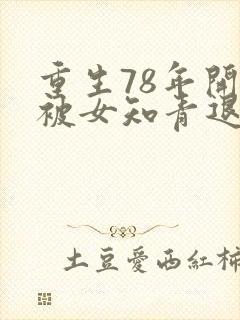 重生78年開
被女知青退
土豆愛西紅柿